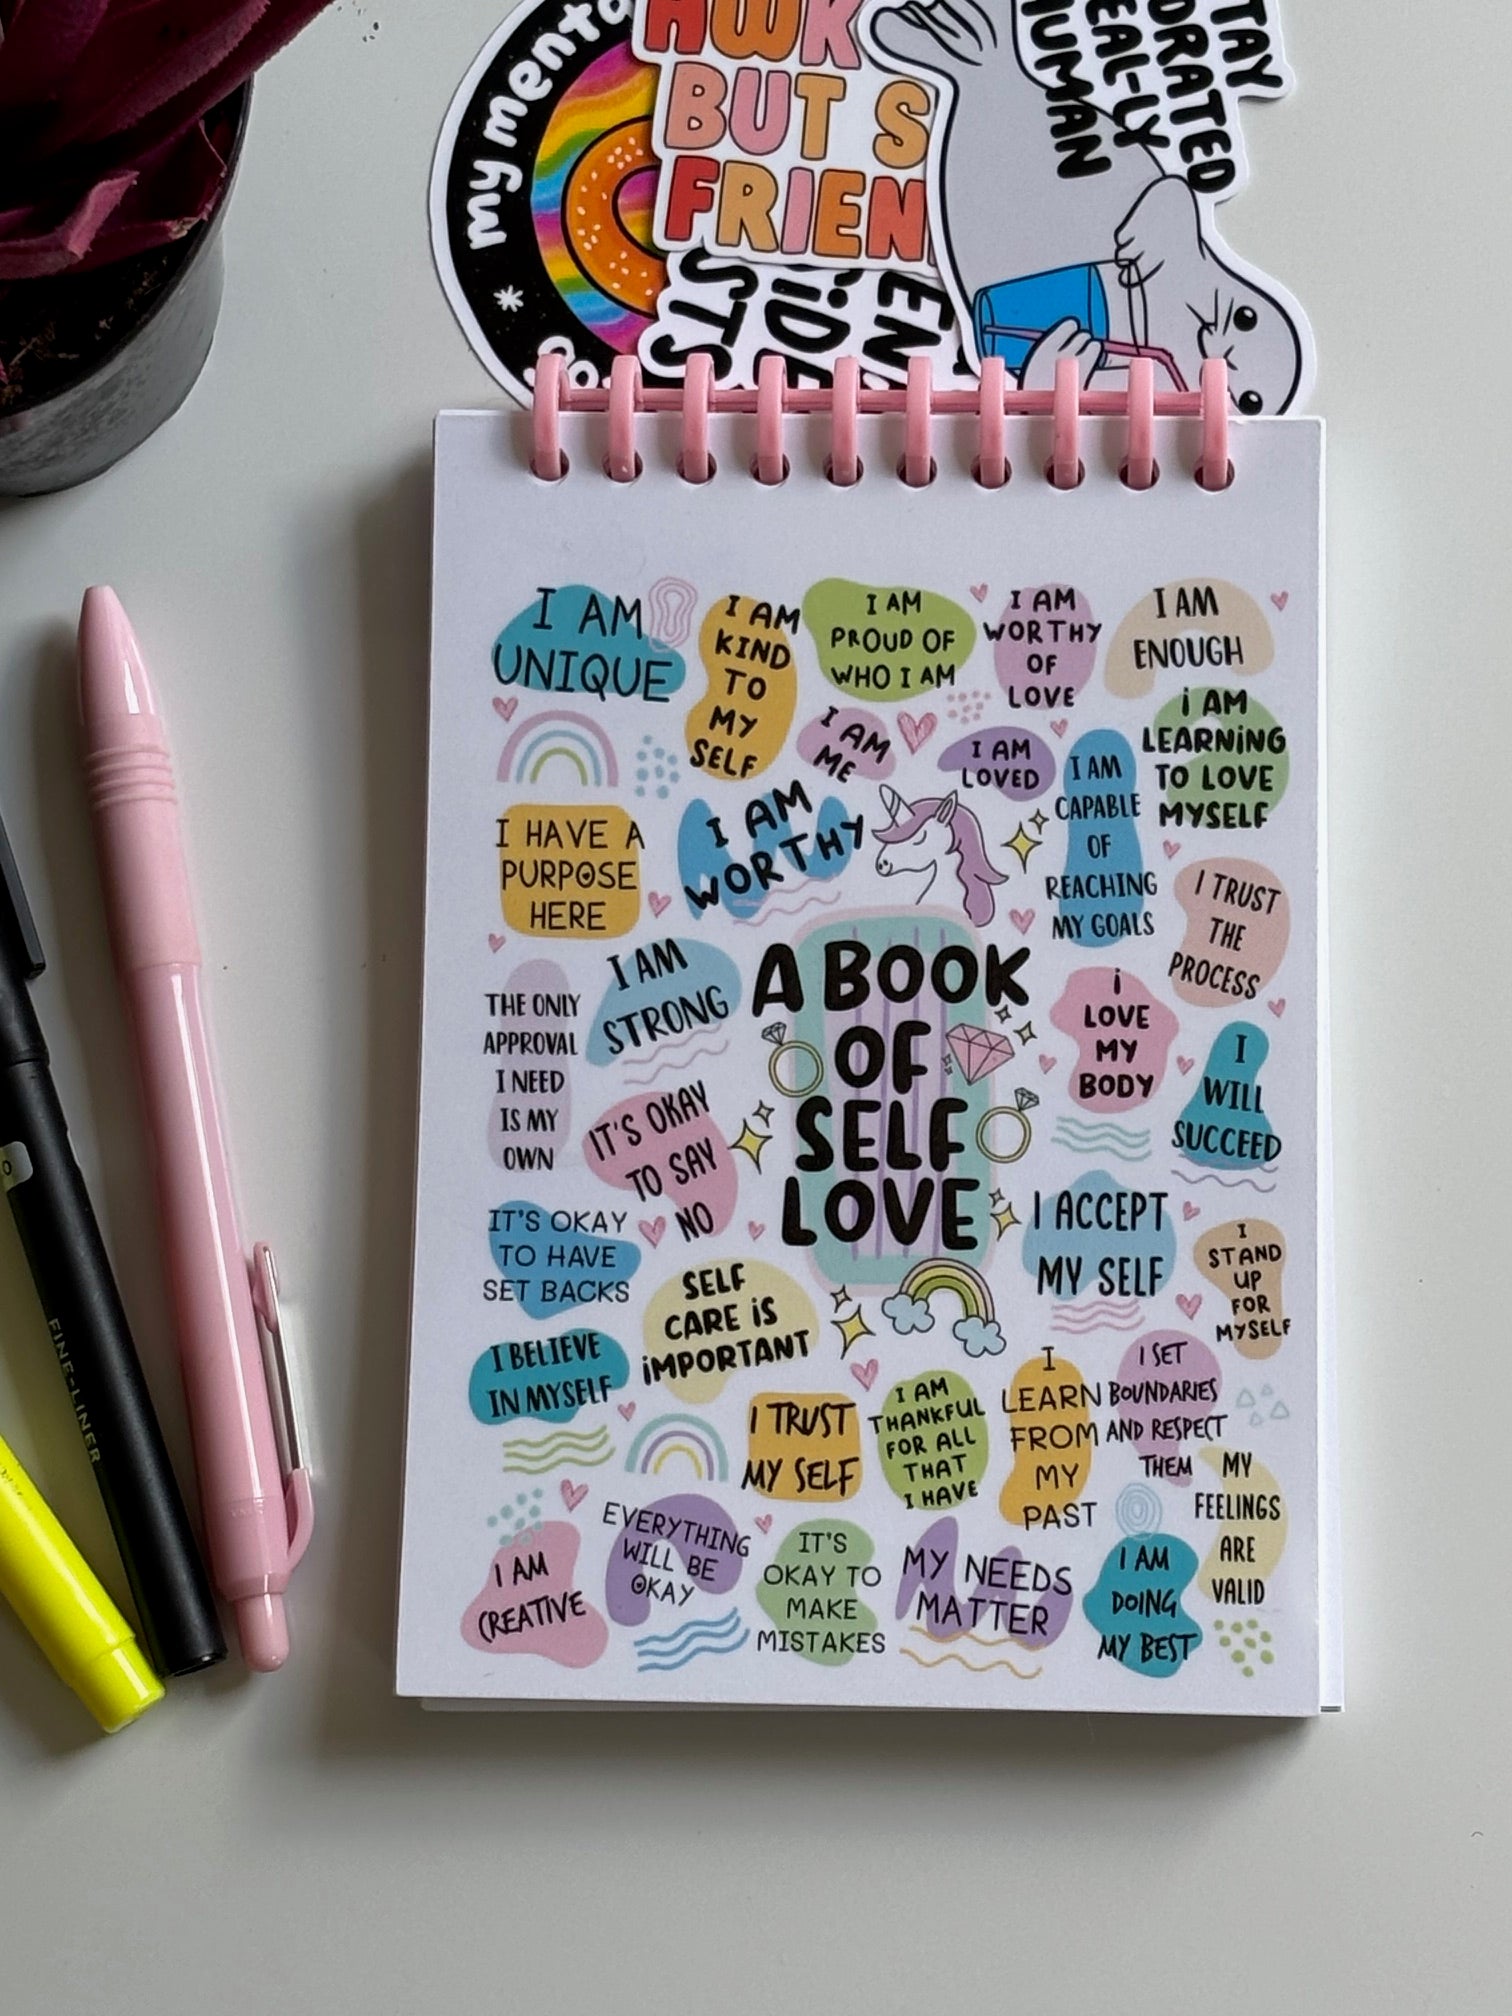 my menta
AWK
BUT S
FRIEN
TAY
DRATED
EAL-LY
HUMAN
I AM
UNIQUE
I AM
KIND
TO
MY
SELF
I AM
PROUD OF
WHO I AM
I AM
WORTHY
OF
LOVE
I AM
ENOUGH
I AM
ME
I AM
LOVED
I AM
CAPABLE
OF
REACHING
MY GOALS
i AM
LEARNiNG
TO LOVE
MYSELF
I HAVE A
PURPOSE
HERE
I AM
WORTHY
I TRUST
THE
PROCESS
THE ONLY
APPROVAL
I NEED
IS MY
OWN
I AM
STRONG
A BOOK
OF
SELF
LOVE
i
LOVE
MY
BODY
I
WILL
SUCCEED
IT'S OKAY
TO SAY
NO
IT'S OKAY
TO HAVE
SET BACKS
SELF
CARE iS
iMPORTANT
I ACCEPT
MY SELF
I
STAND
UP
FOR
MYSELF
I BELIEVE
IN MYSELF
I TRUST
MY SELF
I AM
THANKFUL
FOR ALL
THAT
I HAVE
I
LEARN
FROM
MY
PAST
I SET
BOUNDARIES
AND RESPECT
THEM
MY
FEELINGS
ARE
VALID
I AM
CREATIVE
EVERYTHING
WILL BE
OKAY
IT'S
OKAY TO
MAKE
MISTAKES
MY NEEDS
MATTER
I AM
DOING
MY BEST
FINE-LINER